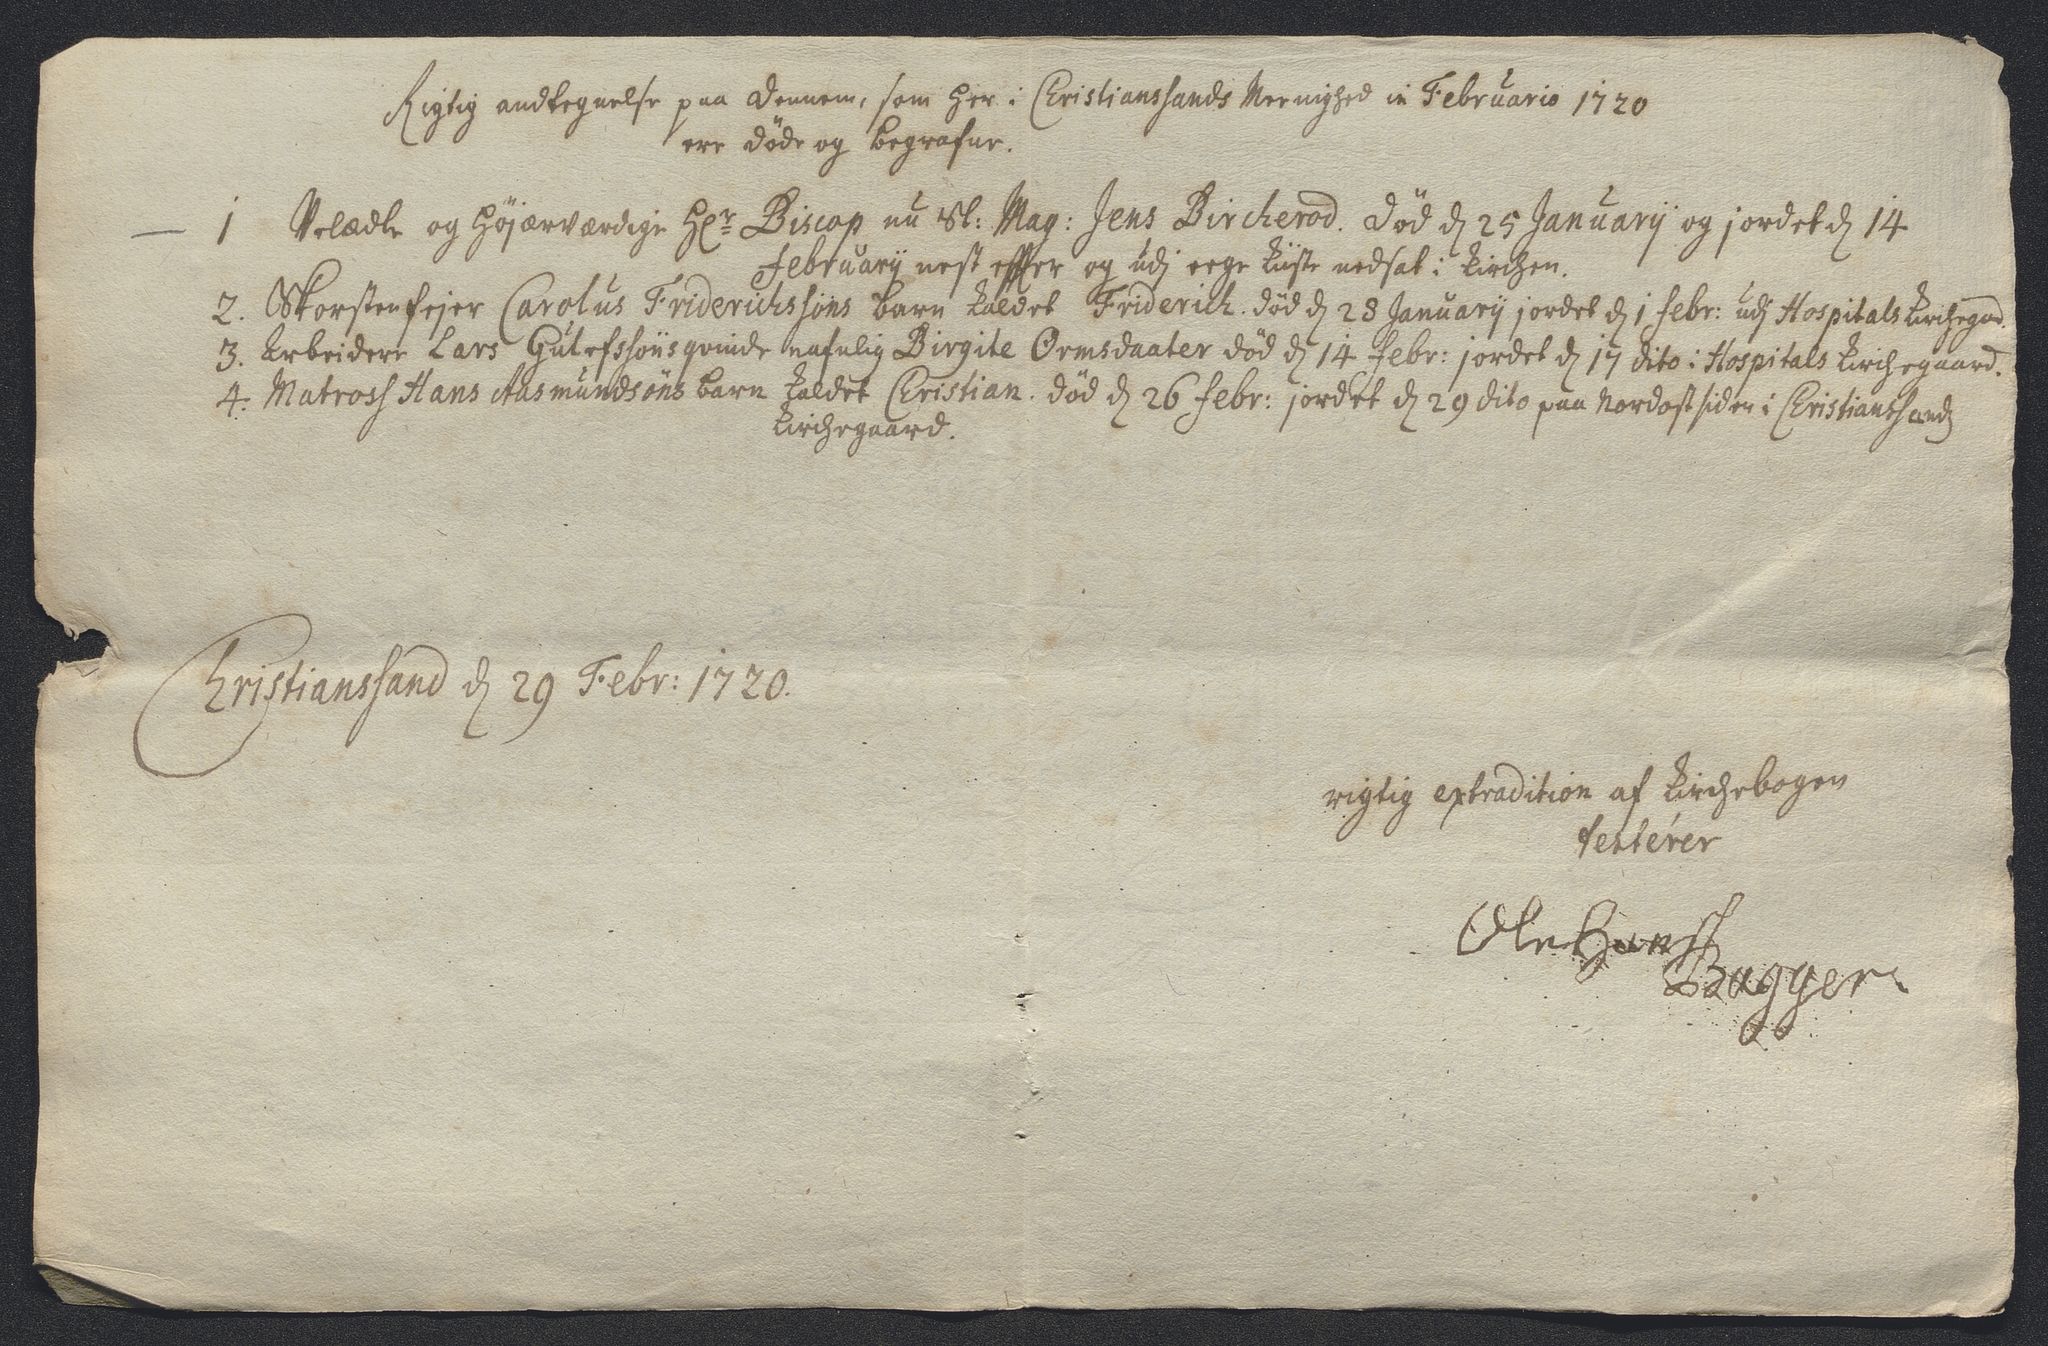 Rigtig andtegnelse paa Dennem, som her i Christianssands Meenighed in Februario 1720
ere døde og begrafne.
1 Velædle og Høÿærværdige Hr Biscop nu Sl: Mag: Jens Bircherod. død d 25 Januarÿ og jordet d 14
februarÿ nest effter og udj eege Kiiste nedsat i Kirchen.
2. Skorstenfejer Carolus Friderichssøns barn kaldet Friderich. død d 28 Januarÿ jordet d 1 febr: udj Hospitals Kirchegrd.
3. Arbeidere Lars Gutefssøns qvinde nafnlig Birgite Ormsdaater død d 14 febr: jordet d 17 dito i Hospitals Kirchegaard.
4. Matross Hans Aasmundsøns barn kaldet Christian. død d 26 febr: jordet d 29 dito paa Nordostsiden i Christianssands
Kirchegaard.
Christianssand d 29 Febr: 1720.
rigtig extradition af Kirchebogen
testerer
Ole Hanss
Bagger